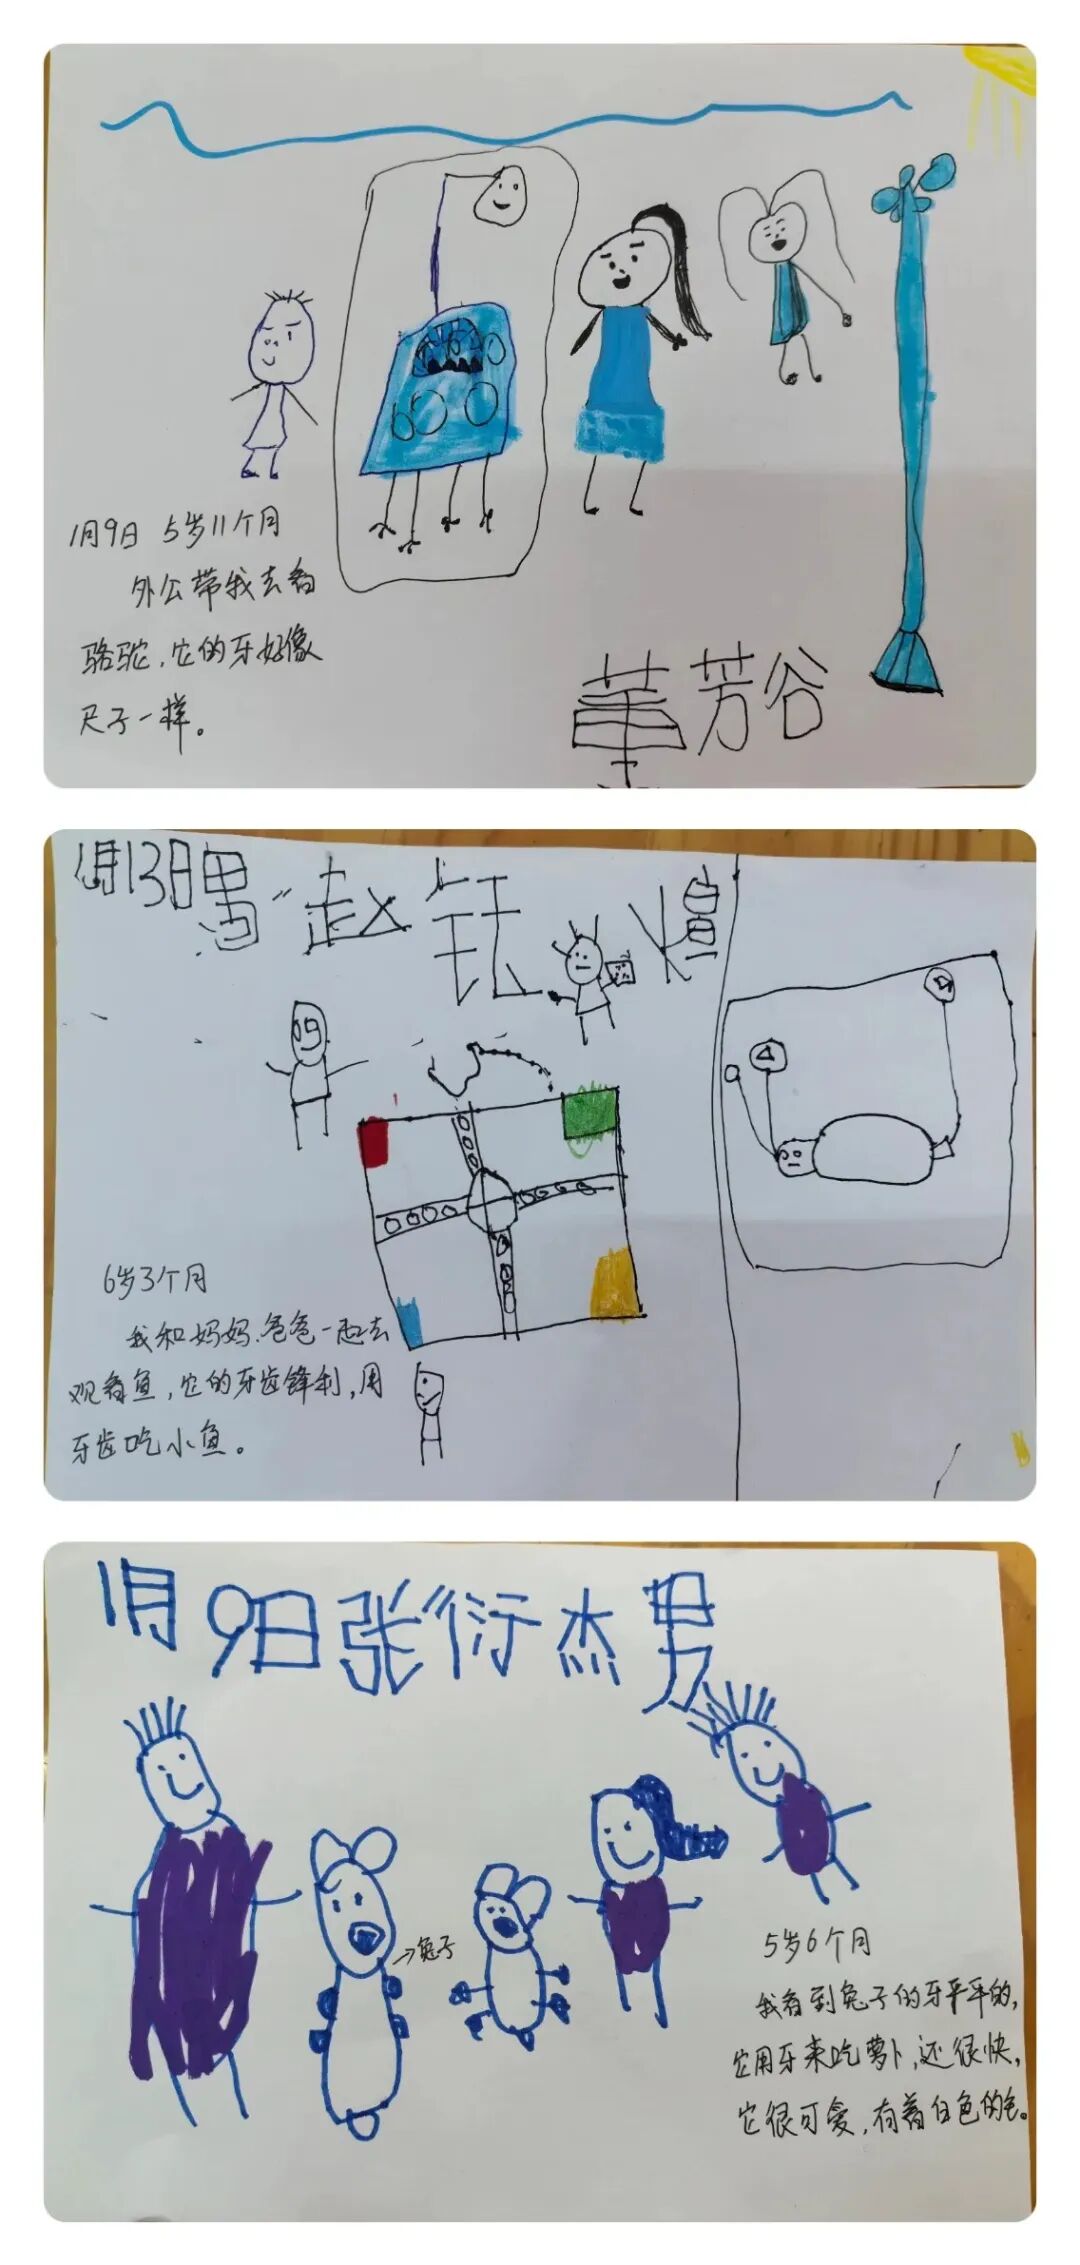 1月9日 5岁11个月
外公带我去看
骆驼，它的牙好像
尺子一样。
董芳谷
1月13日男 赵钰煊
6岁3个月
我和妈妈、爸爸一起去
观看鱼，它的牙齿锋利，用
牙齿吃小鱼。
1月9日张衍杰男
→兔子
5岁6个月
我看到兔子的牙平平的，
它用牙来吃萝卜，还很快，
它很可爱，有着白色的毛。